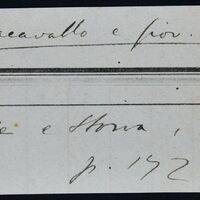 cavallo e fior.
e e Storia,
p. 172